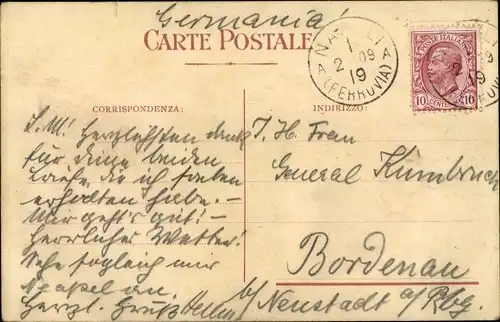 Germania!
CARTE POSTALE
NAPOLI
1
2 09
19
(FERROVIA)
POSTE ITALIANE
10 CENTESIMI 10
CORRISPONDENZA:
INDIRIZZO:
L. M! Herzlichsten Dank
für deine beiden
Briefe, die ich soeben
erhalten habe. –
Mir geht's gut! –
Herrliches Wetter!
Sehe sogleich mir
Neapel an.
Herzl. Gruß
I. H. Frau
General
Bordenau
b/ Neustadt a/Rbg.